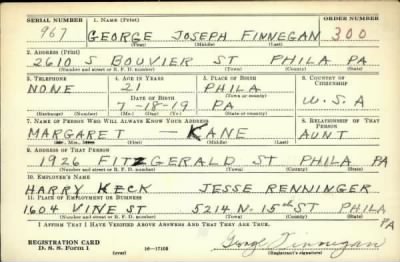 SERIAL NUMBER 1. NAME (Print) ORDER NUMBER
967 GEORGE JOSEPH FINNEGAN 300
(First) (Middle) (Last)
2. ADDRESS (Print)
2610 S BOUVIER ST PHILA PA
(Number and street or R. F. D. number) (Town) (County) (State)
3. TELEPHONE 4. AGE IN YEARS 5. PLACE OF BIRTH 6. COUNTRY OF CITIZENSHIP
NONE 21 PHILA
DATE OF BIRTH (Town or county)
7-18-19 PA U.S.A
(Mo.) (Day) (Yr.) (State or country)
7. NAME OF PERSON WHO WILL ALWAYS KNOW YOUR ADDRESS 8. RELATIONSHIP OF THAT PERSON
MARGARET — KANE AUNT
(First) (Middle) (Last)
9. ADDRESS OF THAT PERSON
1926 FITZGERALD ST PHILA PA
(Number and street or R. F. D. number) (Town) (County) (State)
10. EMPLOYER'S NAME
HARRY KECK JESSE RENNINGER
11. PLACE OF EMPLOYMENT OR BUSINESS
1604 VINE ST 5214 N. 15th ST PHILA PA
(Number and street or R. F. D. number) (Town) (County) (State)
I AFFIRM THAT I HAVE VERIFIED ABOVE ANSWERS AND THAT THEY ARE TRUE.
REGISTRATION CARD
D. S. S. Form 1 (over) 16—17105 George Finnegan
(Registrant's signature)